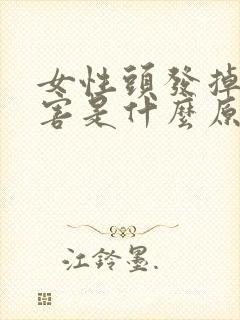 女性頭發掉
害是什麼原
江鈴墨.